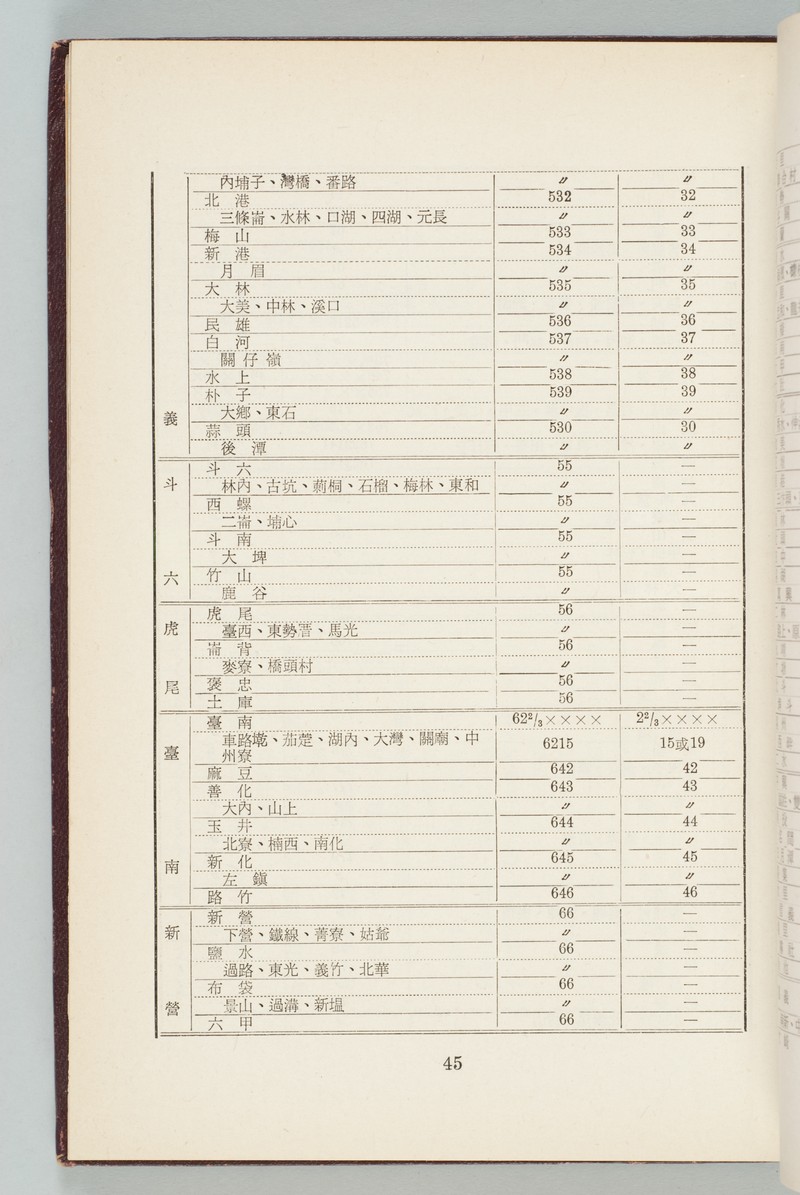 內埔子、灣橋、番路 〃 〃
北港 532 32
三條崙、水林、口湖、四湖、元長 〃 〃
梅山 533 33
新港 534 34
月眉 〃 〃
大林 535 35
大美、中林、溪口 〃 〃
民雄 536 36
白河 537 37
關仔嶺 〃 〃
水上 538 38
朴子 539 39
義 大鄉、東石 〃 〃
蒜頭 530 30
後潭 〃 〃
斗六 55 —
斗 林內、古坑、莿桐、石榴、梅林、東和 〃 —
西螺 55 —
二崙、埔心 〃 —
斗南 55 —
大埤 〃 —
六 竹山 55 —
鹿谷 〃 —
虎尾 56 —
虎 臺西、東勢厝、馬光 〃 —
崙背 56 —
麥寮、橋頭村 〃 —
尾 褒忠 56 —
土庫 56 —
臺南 62²/₃×××× 2²/₃××××
臺 車路墘、茄萣、湖內、大灣、關廟、中
州寮 6215 15或19
麻豆 642 42
善化 643 43
大內、山上 〃 〃
玉井 644 44
北寮、楠西、南化 〃 〃
南 新化 645 45
左鎭 〃 〃
路竹 646 46
新營 66 —
新 下營、鐵線、菁寮、姑爺 〃 —
鹽水 66 —
過路、東光、義竹、北華 〃 —
布袋 66 —
營 景山、過溝、新塭 〃 —
六甲 66 —
45